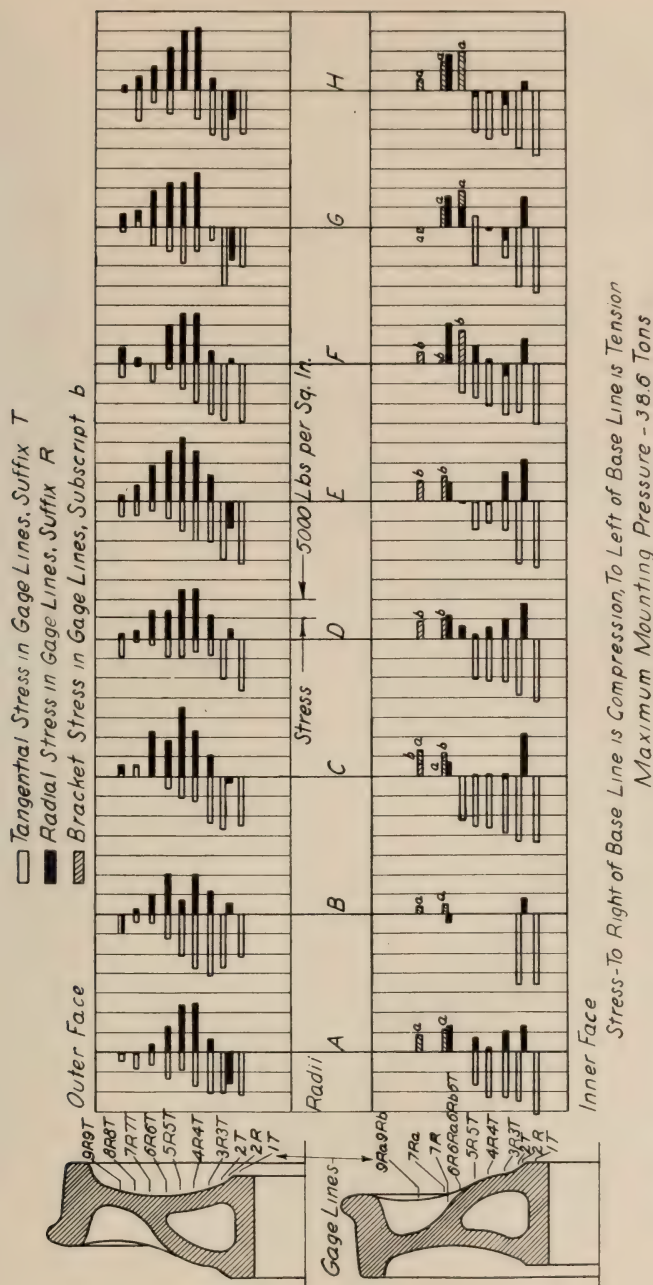 Tangential Stress in Gage Lines, Suffix T
Radial Stress in Gage Lines, Suffix R
Bracket Stress in Gage Lines, Subscript b
Outer Face
9R9T
8R8T
7R7T
6R6T
5R5T
4R4T
3R3T
2T
2R
1T
Stress
5000 Lbs per Sq. In.
Radii
A
B
C
D
E
F
G
H
Gage Lines
9Ra9Rb
7Ra
7R
6R6Ra6Rb6T
5R5T
4R4T
3R3T
2T
2R
1T
a
a
a
a
a
b
a
b
b
b
b
b
b
b
b
a
a
a
a
a
a
Inner Face
Stress-To Right of Base Line is Compression, To Left of Base Line is Tension
Maximum Mounting Pressure - 38.6 Tons